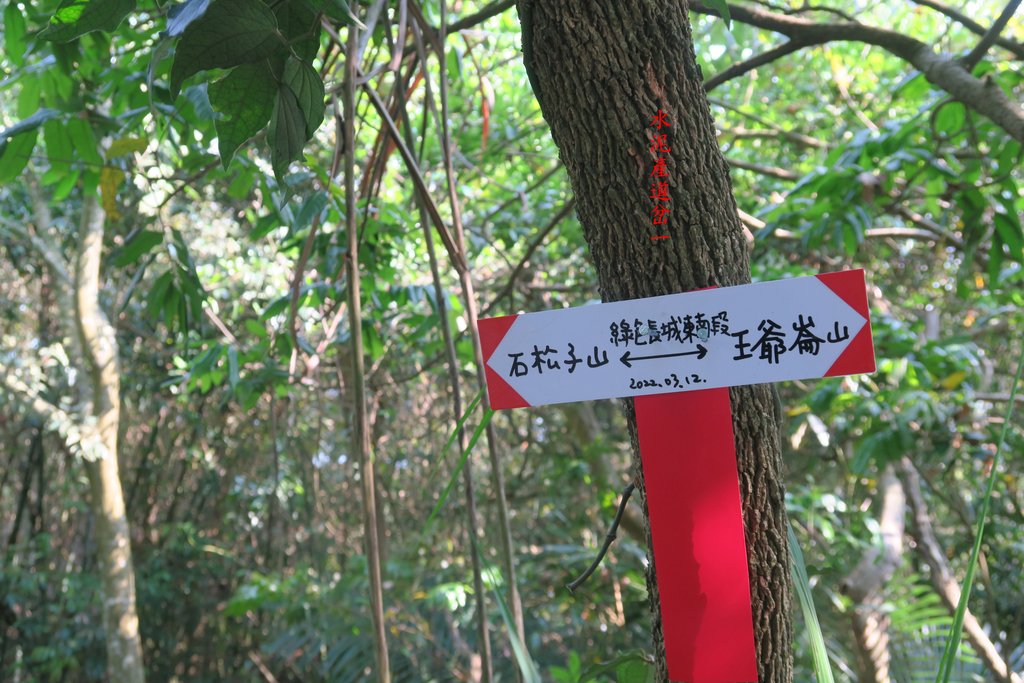 水泥產道岔一
綠色長城東南段
石松子山 ←→ 王爺崙山
2022.03.12.